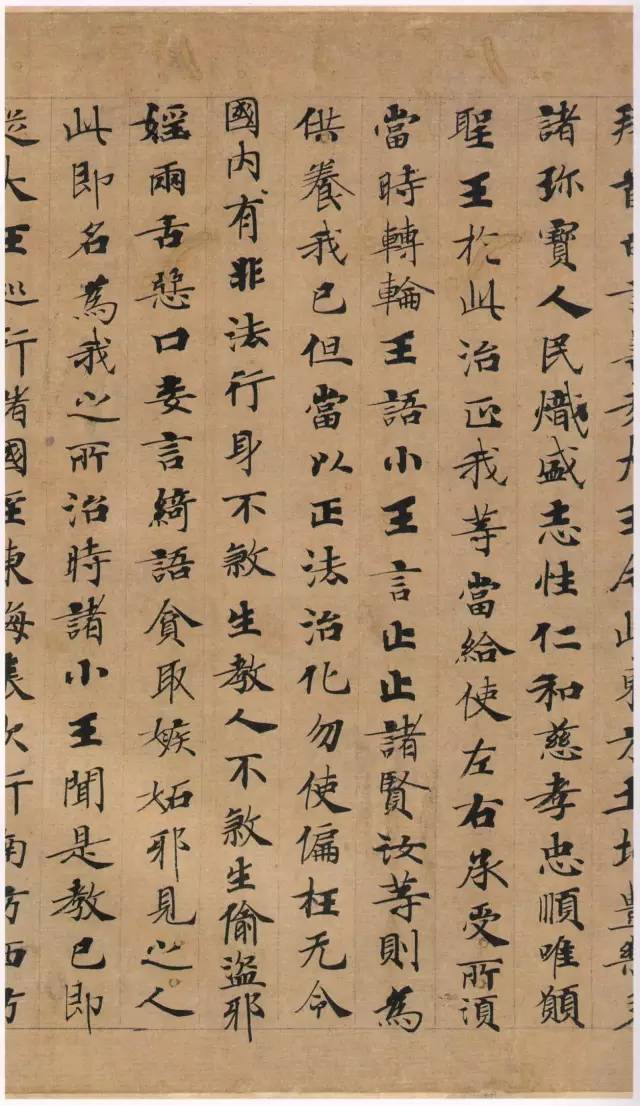 大王今此東方土地豊樂多
諸珎寶人民熾盛志性仁和慈孝忠順唯願
聖王於此治正我等當給使左右承受所湏
當時轉輪王語小王言止止諸賢汝等則為
供養我已但當以正法治化勿使偏枉无令
國内有非法行身不煞生教人不煞生偷盜邪
婬兩舌惡口妄言綺語貪取嫉妬邪見之人
此即名為我之所治時諸小王聞是教已即
從大王巡行諸國至東海表次行南方西方